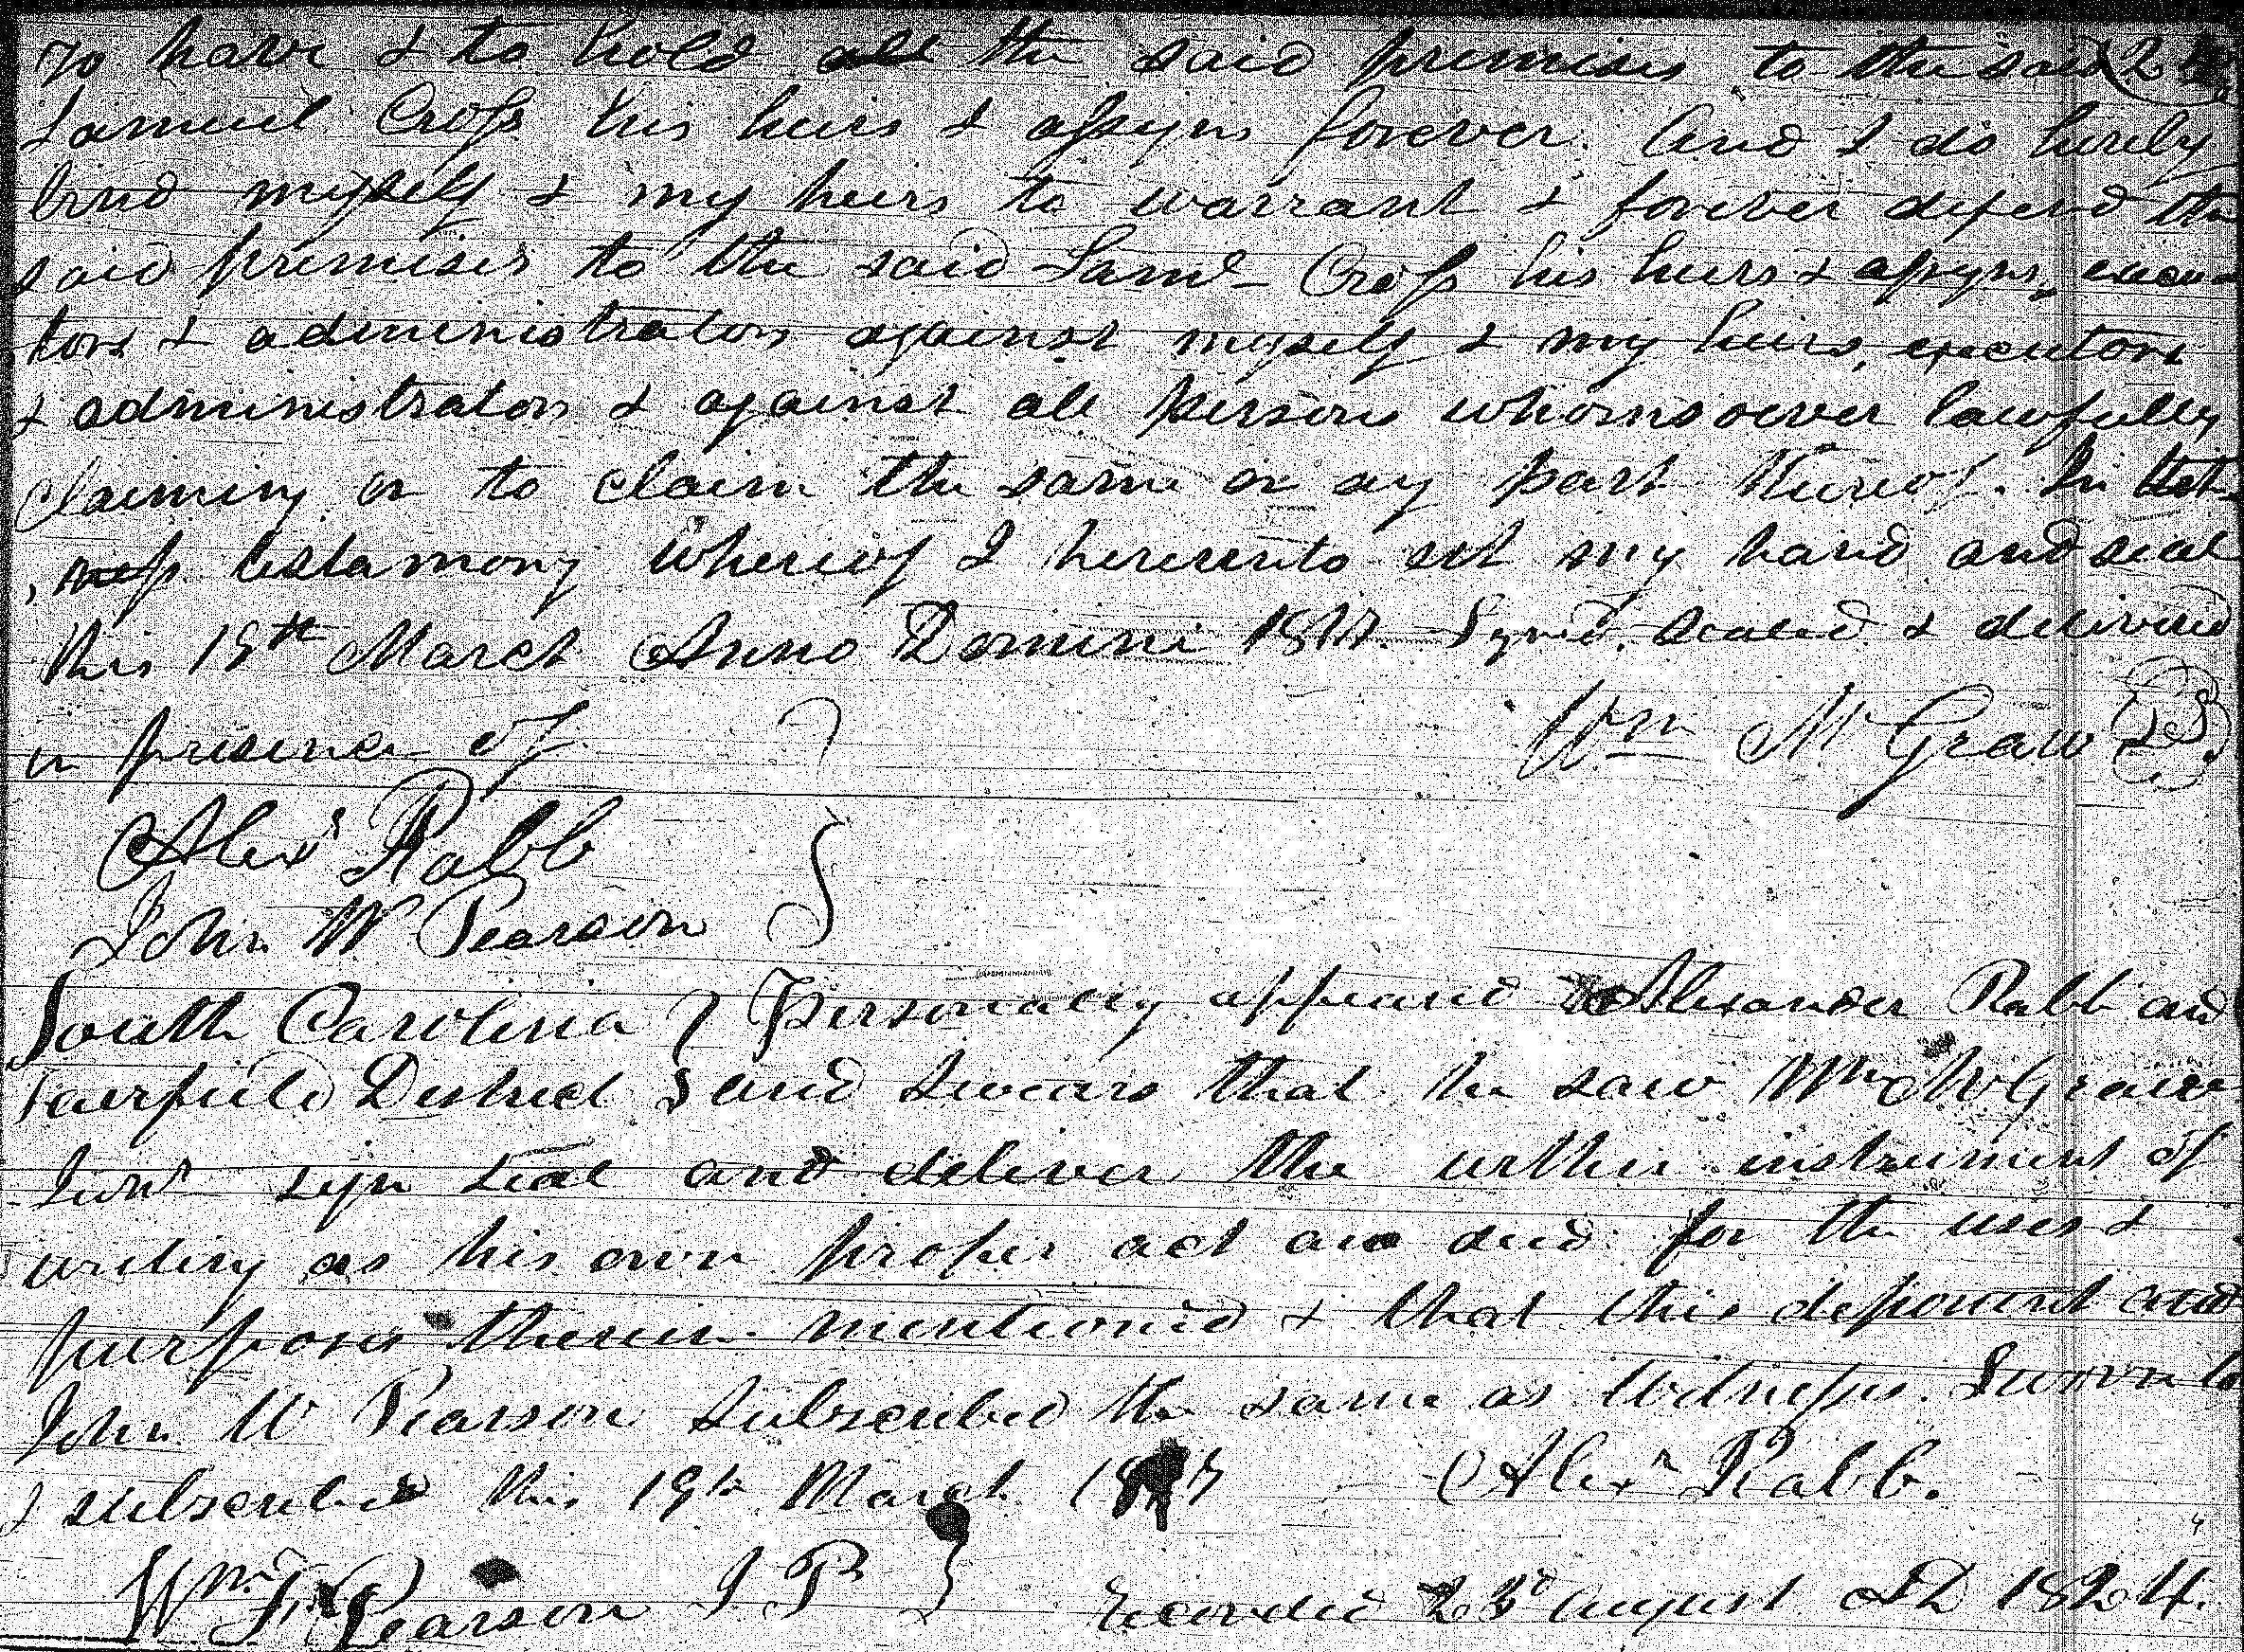 To have & to hold all the said premises to the said
Samuel Cross his heirs & assigns forever. And I do hereby
bind myself & my heirs to warrant & forever defend the
said premises to the said Saml Cross his heirs & assigns, execu-
tors & administrators against myself & my heirs, executors
& administrators & against all persons whomsoever lawfully
claiming or to claim the same or any part thereof. In
testamony whereof I hereunto set my hand and seal
this 19th March Anno Domini 1817. Signed, sealed & delivered
in presence of Wm McGraw LS
Alexr Rabb
John W Pearson
South Carolina } Personally appeared Alexander Rabb and
Fairfield District } and swears that he saw Wm McGraw
Junr sign seal and deliver the within instrument of
writing as his own proper act and deed for the uses &
purposes therein mentioned & that this deponent and
John W Pearson subscribed the same as Witnesses. Sworn to
& subscribed this 19th March Alexr Rabb.
Wm F. Pearson J P } Recorded August AD 1824.